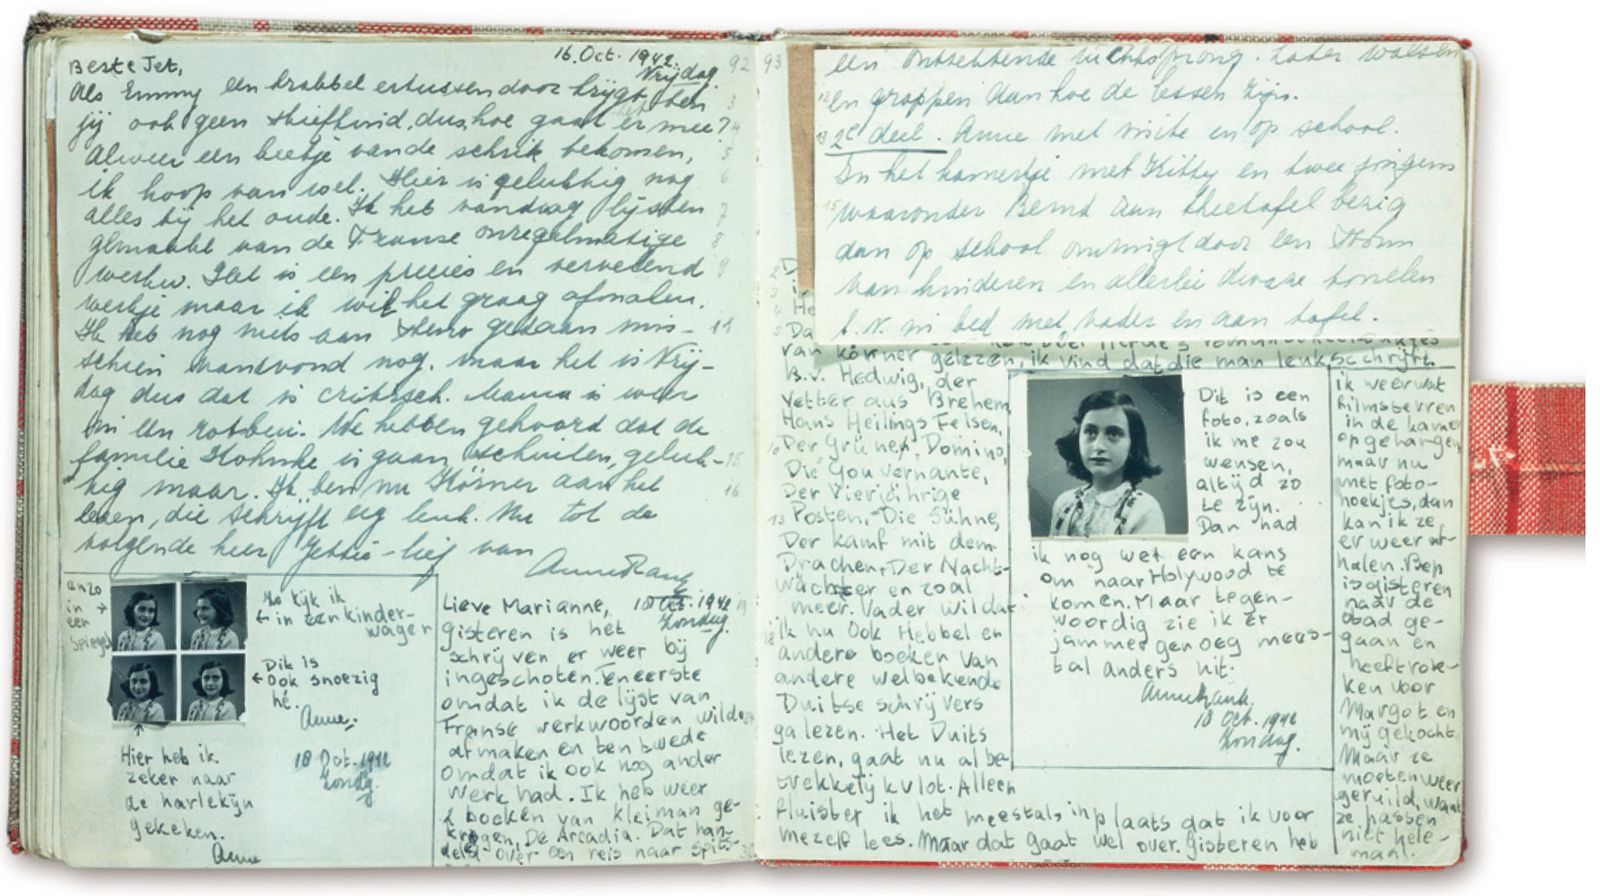 16. Oct. 1942.
Vrijdag.
Beste Jet,
Als Emmy een krabbel ertussendoor krijgt, ben
jij ook geen stiefkind, dus hoe gaat het er mee?
Alweer een beetje van de schrik bekomen,
ik hoop van wel. Hier is gelukkig nog
alles bij het oude. Ik heb vandaag lijsten
gemaakt van de Franse onregelmatige
werkw. Het is een precies en vervelend
werkje maar ik wil het graag afmaken.
Ik heb nog niets aan Steno gedaan mis-
schien vanavond nog, maar het is Vrij-
dag dus dat is critiesch. Mama is weer
We hebben gehoord dat de
familie is gaan schuilen, geluk-
kig maar. Ik ben nu Körner aan het
lezen, die schrijft erg leuk. Nu tot de
volgende keer Jettie-lief van
Anne Frank
enzo
in
een
spiegel
Zo kijk ik
in een kinder-
wagen
Dit is
ook snoezig
hé.
Anne.
18 Oct. 1942
Zondag.
Hier heb ik
zeker naar
de harlekijn
gekeken.
Anne
18 Oct. 1942
Zondag.
Lieve Marianne,
Gisteren is het
schrijven er weer bij
ingeschoten. Ten eerste
omdat ik de lijst van
Franse werkwoorden wilde
afmaken en ten twede
omdat ik ook nog ander
werk had. Ik heb weer
2 boeken van kleiman ge-
kregen, De Arcadia. Dat han-
deld over een reis naar Spits-
92
93
een ontzettende luchtsprong. Later walsen
en grappen dan hoe de lessen zijn.
2e deel. Anne met visite en op school.
In het kamertje met Kitty en twee jongens
waaronder Bernd aan theetafel bezig
dan op school omringt door een stroom
van kinderen en allerlei dwaze tonelen
b.v. in bed met vader en aan tafel.
van körner gelezen, ik vind dat die man leuk schrijft.
B.v. Hedwig, der
Vetter aus Brehem,
Hans Heilings Felsen,
Der Grüner, Domino,
Die Gouvernante,
Der Vierjährige
Posten, Die Sühne,
Der kamf mit dem
Drachen, Der Nacht-
wächter en zoal
meer. Vader wil dat
ik nu ook Hebbel en
andere boeken van
andere welbekende
Duitse schrijvers
ga lezen. Het Duits
lezen, gaat nu al be-
trekkelijk vlot. Alleen
fluister ik het meestal, inplaats dat ik voor
mezelf lees. Maar dat gaat wel over. Gisteren heb
Dit is een
foto, zoals
ik me zou
wensen,
altijd zo
te zijn.
Dan had
ik nog wel een kans
om naar Holywood te
komen. Maar tegen-
woordig zie ik er
jammer genoeg mees-
tal anders uit.
Anne Frank.
18 Oct. 1942
Zondag.
ik weer wat
filmsterren
in de kamer
opgehangen
maar nu
met foto-
hoekjes, dan
kan ik ze
er weer af-
halen. Bep
is gisteren
naar de
stad ge-
gaan en
heeft rok-
ken voor
Margot en
mij gekocht.
Maar ze
moeten weer
geruild, want
ze passen
niet hele-
maal.